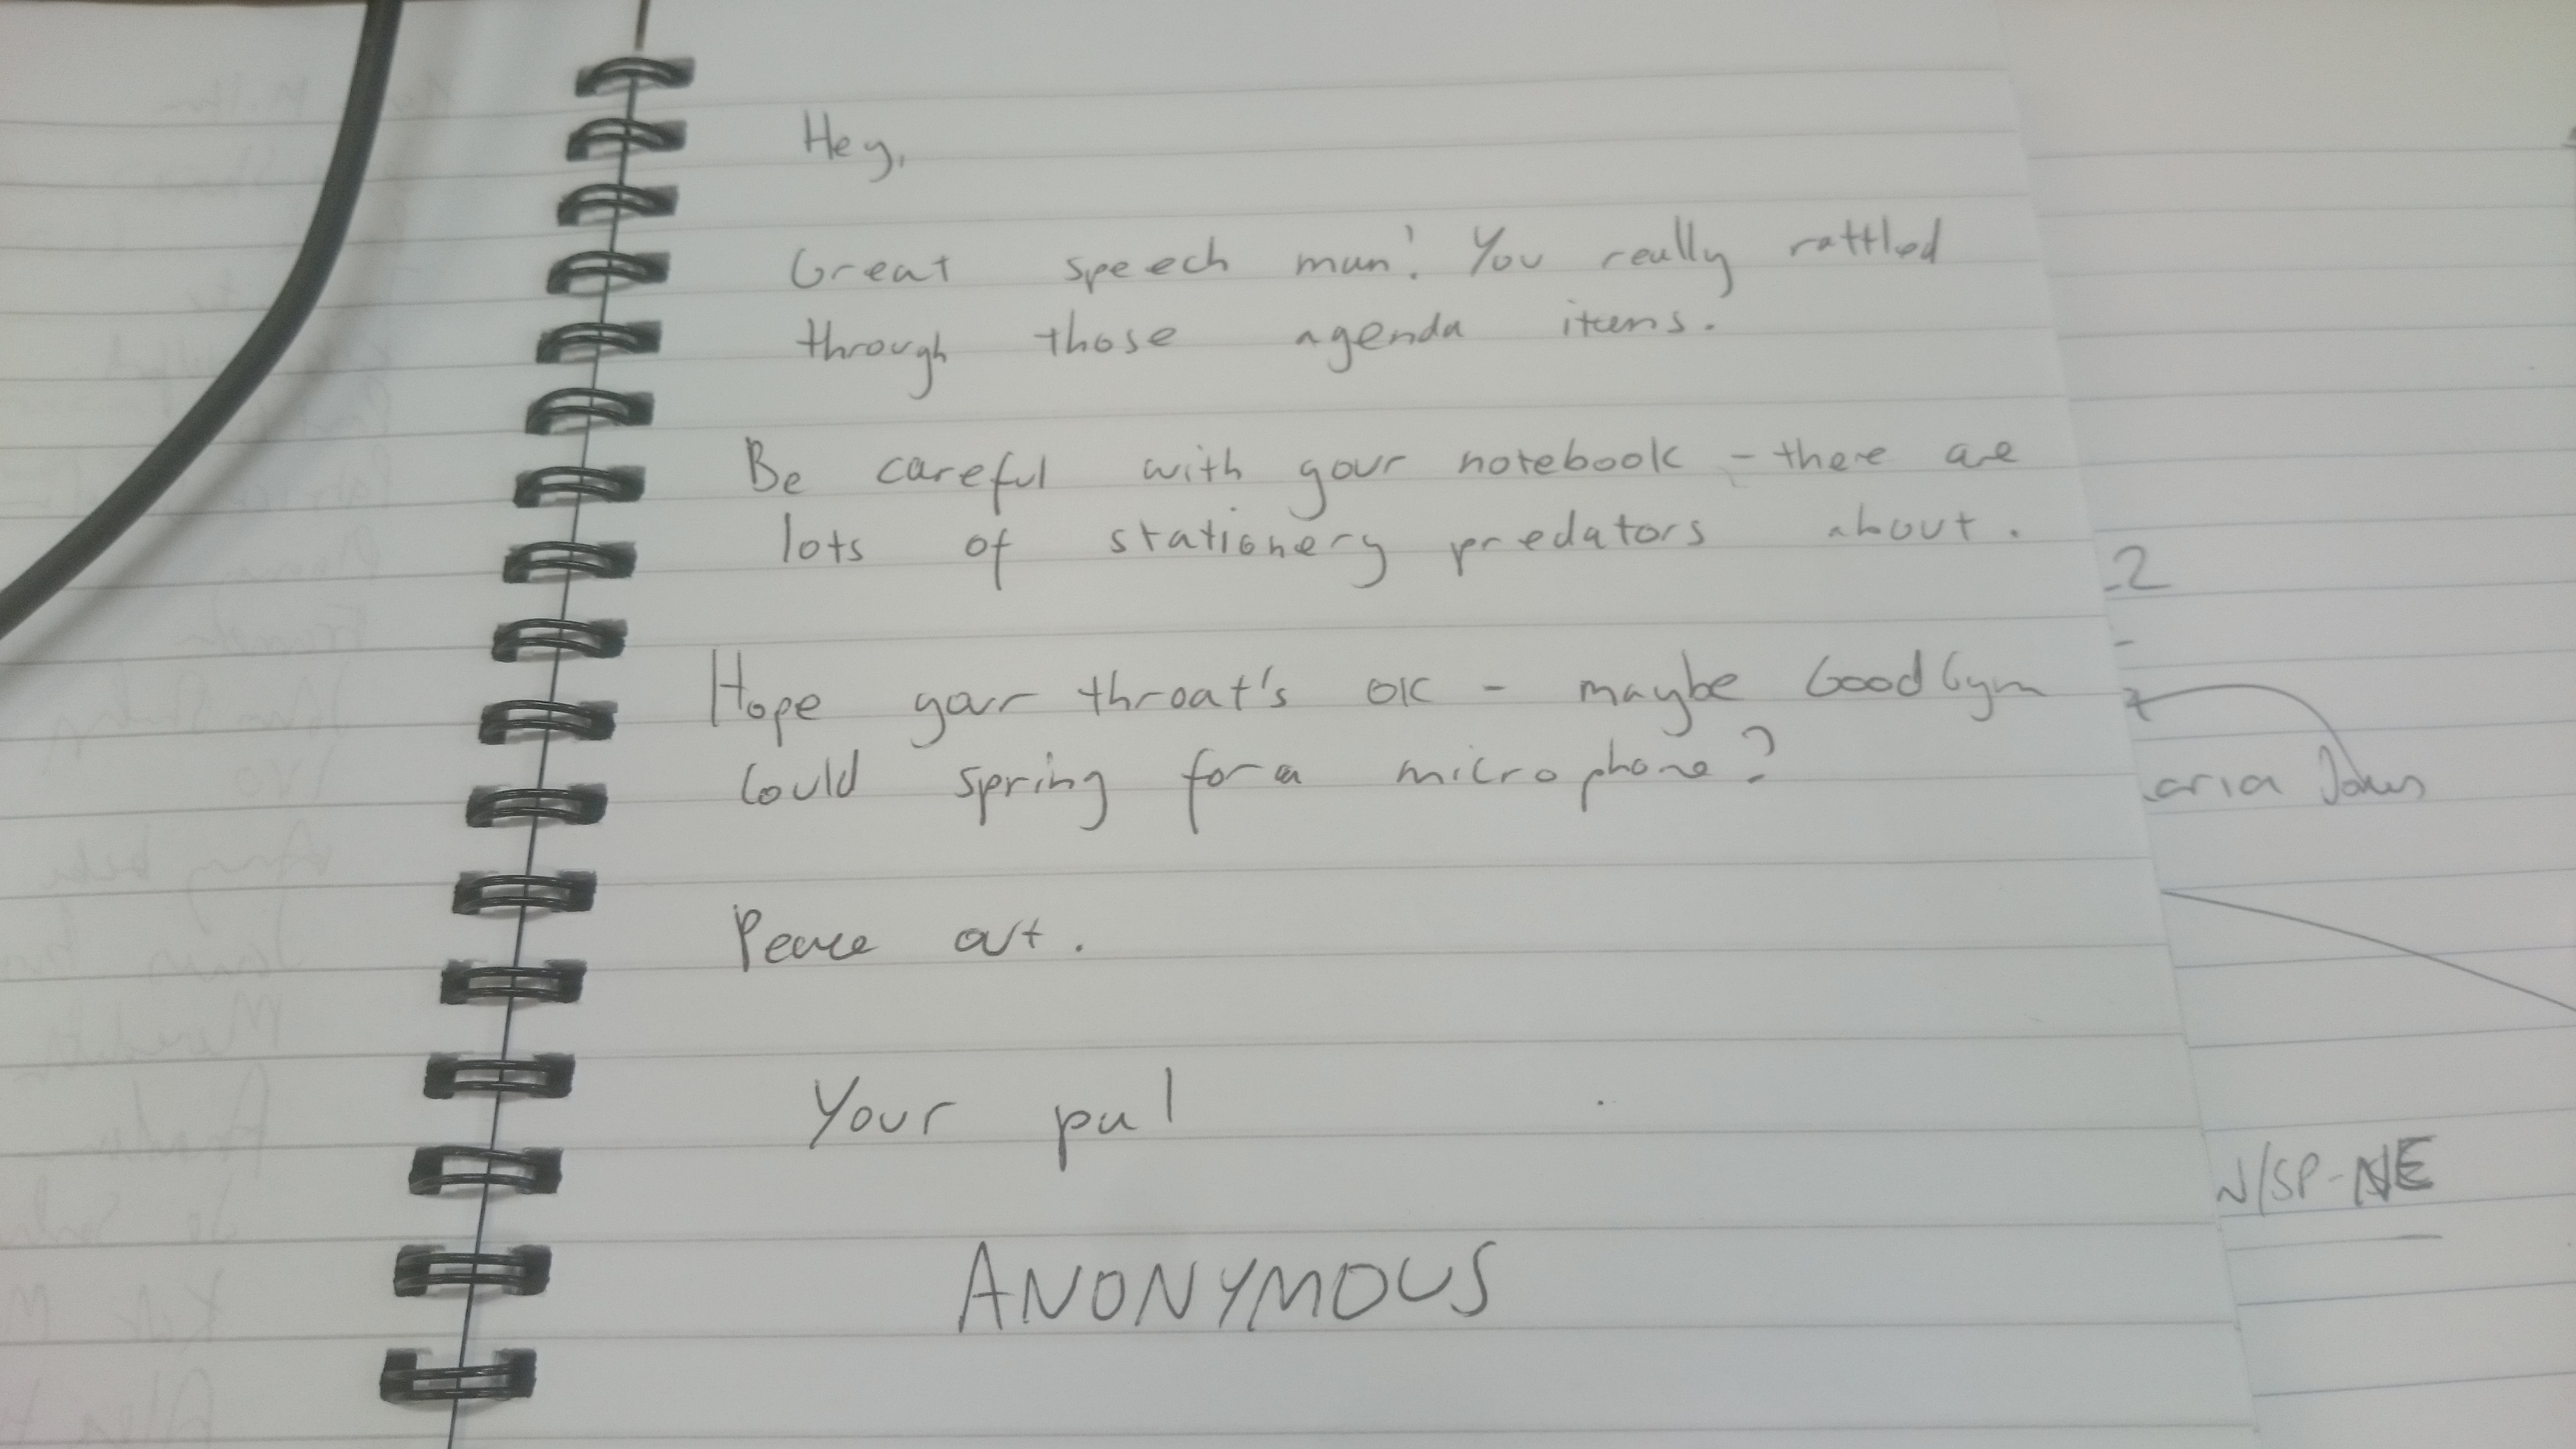 Hey,
Great speech man! You really rattled
through those agenda items.
Be careful with your notebook - there are
lots of stationery predators about.
Hope your throat's ok - maybe GoodGym
could spring for a microphone?
Peace out.
Your pal
ANONYMOUS
2
N/SP-NE